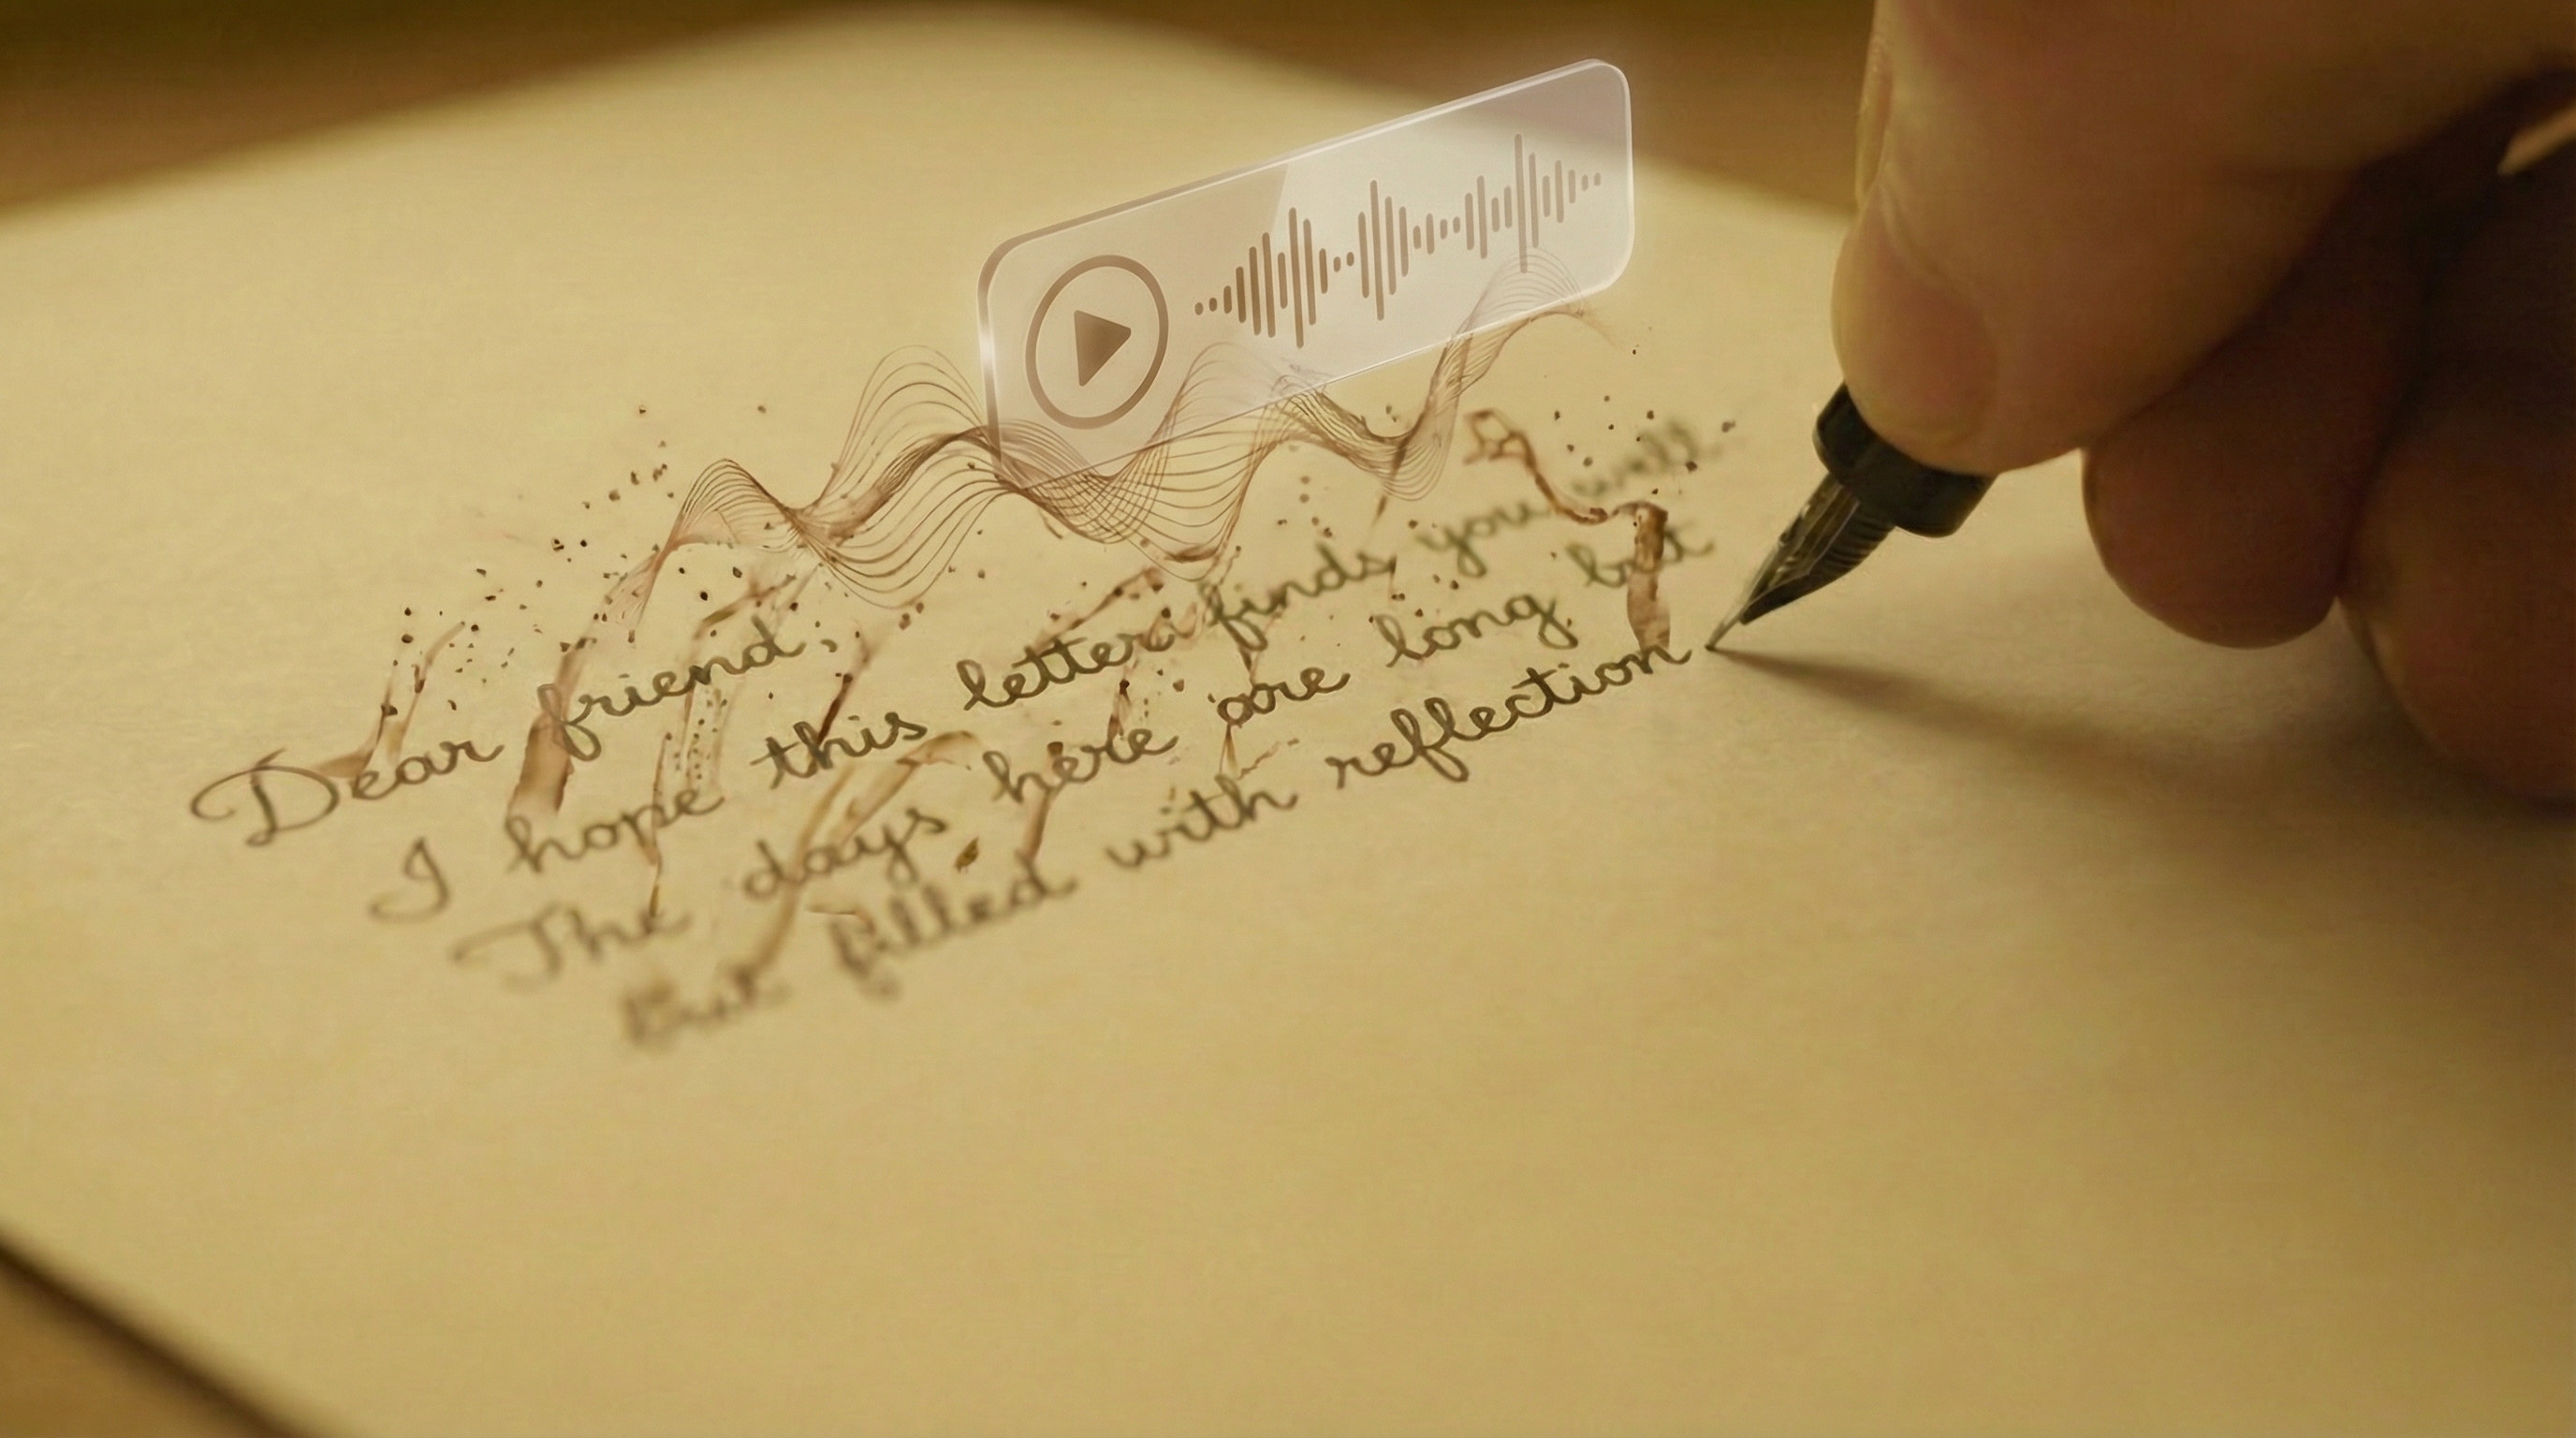 Dear friend,
I hope this letter finds you well.
The days here are long but
But filled with reflection